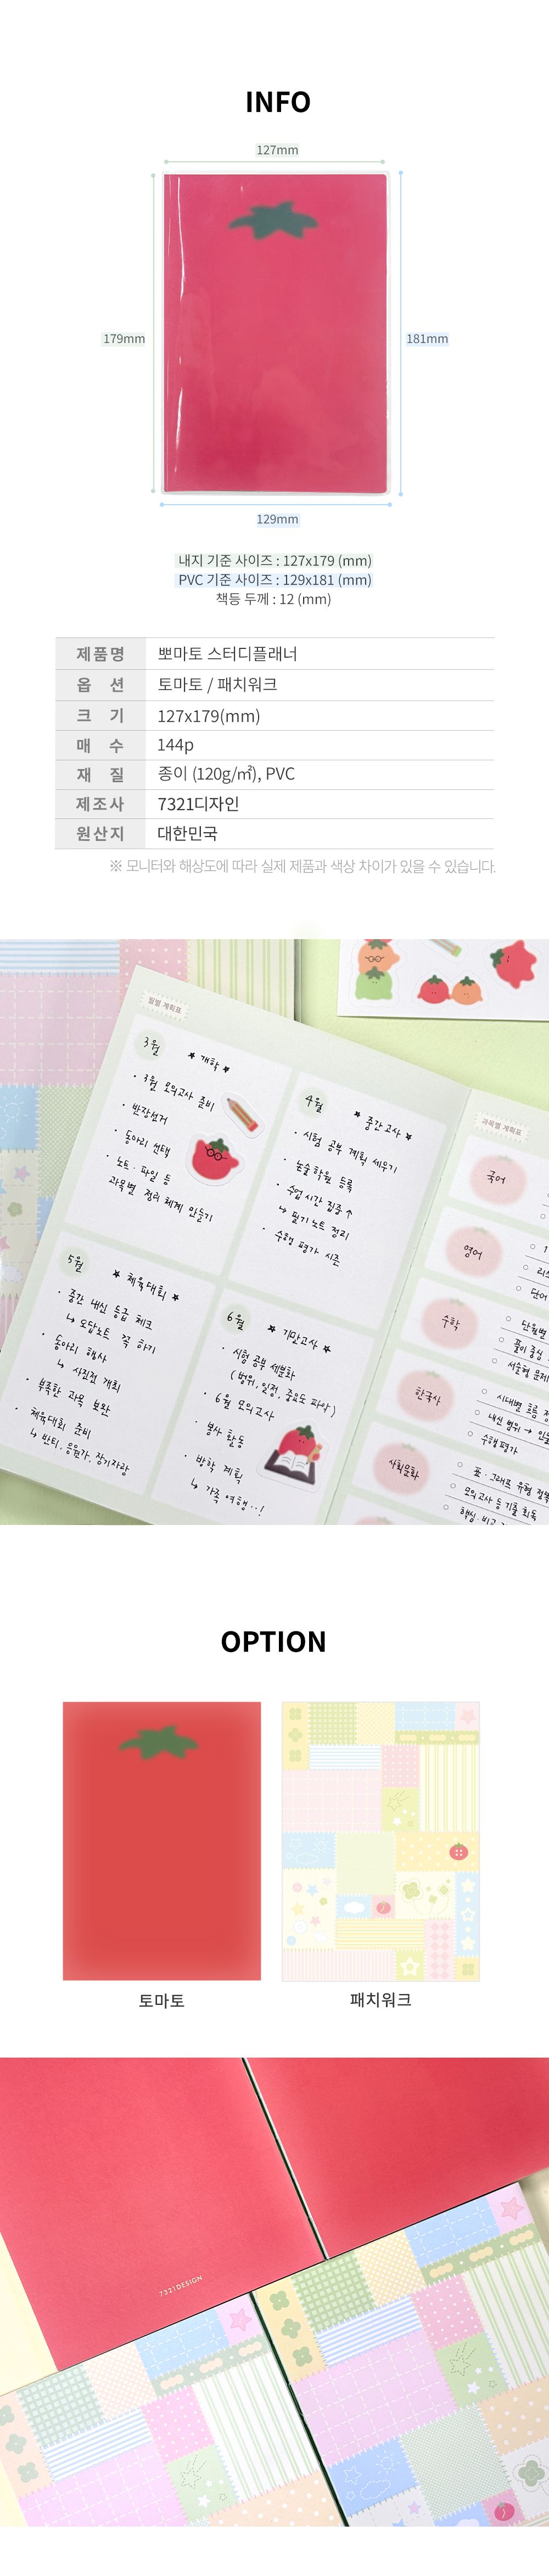 INFO
127mm
179mm
181mm
129mm
내지 기준 사이즈 : 127x179 (mm)
PVC 기준 사이즈 : 129x181 (mm)
책등 두께 : 12 (mm)
제품명 뽀마토 스터디플래너
옵 션 토마토 / 패치워크
크 기 127x179(mm)
매 수 144p
재 질 종이 (120g/㎡), PVC
제조사 7321디자인
원산지 대한민국
※ 모니터와 해상도에 따라 실제 제품과 색상 차이가 있을 수 있습니다.
월별 계획표
3월
★ 개학 ★
· 3월 모의고사 준비
· 반장선거
· 동아리 선택
· 노트 · 파일 등
과목별 정리 체계 만들기
4월
★ 중간고사 ★
· 시험 공부 계획 세우기
· 논술 학원 등록
· 수업 시간 집중 ↑
↳ 필기 노트 정리
· 수행 평가 시즌
5월
★ 체육대회 ★
· 중간 내신 등급 체크
↳ 오답노트 꼭 하기
· 동아리 행사
↳ 사진전 개최
· 부족한 과목 보완
· 체육대회 준비
↳ 반티, 응원가, 장기자랑
6월
★ 기말고사 ★
· 시험 공부 세분화
(범위, 일정, 중요도 파악)
· 6월 모의고사
· 봉사 활동
· 방학 계획
↳ 가족 여행..!
과목별 계획표
국어
영어
단어
수학
단원별
풀이 중심
서술형 문제
한국사
시대별 흐름
내신 범위 →
수행평가
사회문화
표 · 그래프 유형
모의고사 등 기출 회독
OPTION
토마토
패치워크
7321DESIGN